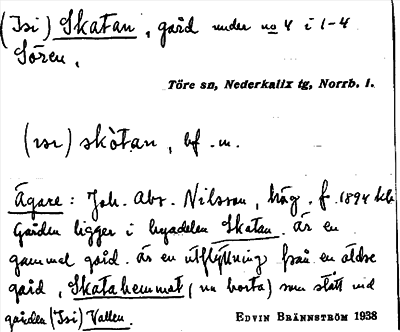 (Isi) Skatan, gård under no 4 i 1-4
Sören.
Töre sn, Nederkalix tg, Norrb. l.
(ɪsɪ) skòtan, bf. m.
Ägare: Joh. Abr. Nilsson, häg, f. 1894
Gården ligger i byadelen Skatan. Är en
gammal gård. är en utflyttning från en äldre
gård, Skatahemmat (nu borta) som stått vid
gården (Isi) Vallen.
EDVIN BRÄNNSTRÖM 1938